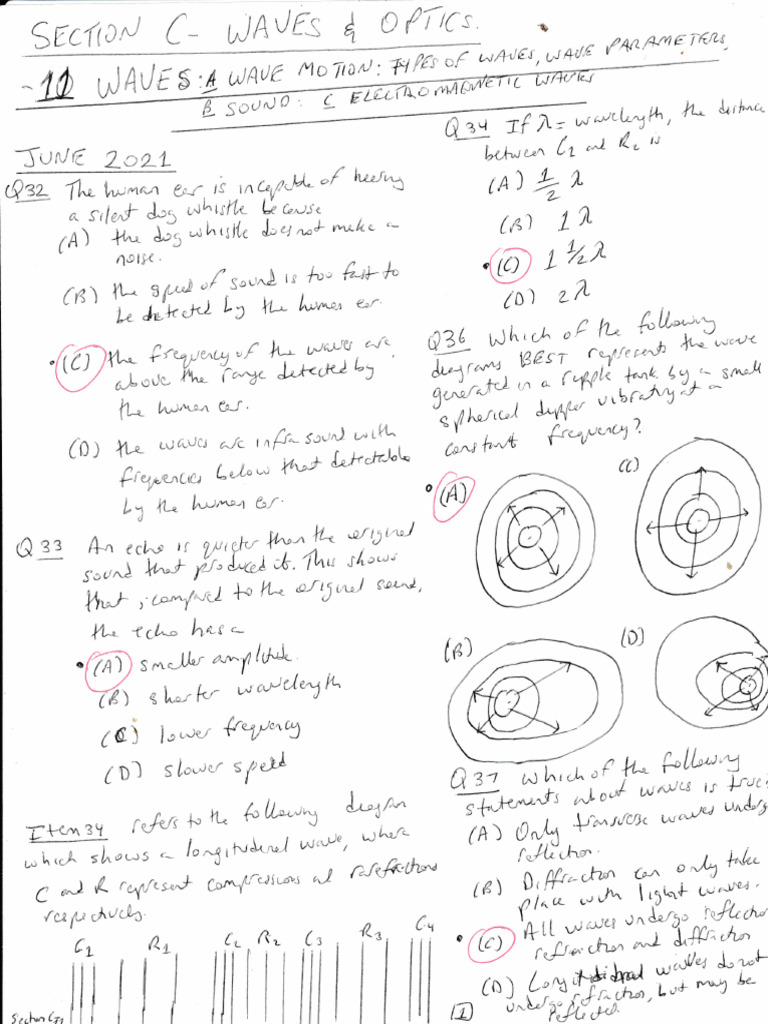 SECTION C- WAVES & OPTICS.
-11 WAVES: A WAVE MOTION: TYPES OF WAVES, WAVE PARAMETERS,
B SOUND: C ELECTROMAGNETIC WAVES
JUNE 2021
Q32 The human ear is incapable of hearing
a silent dog whistle because
(A) the dog whistle does not make a
noise.
(B) the speed of sound is too fast to
be detected by the human ear.
(C) the frequency of the waves are
above the range detected by
the human ear.
(D) the waves are infra sound with
frequencies below that detectable
by the human ear.
Q33 An echo is quieter than the original
sound that produced it. This shows
that, compared to the original sound,
the echo has a
(A) smaller amplitude.
(B) shorter wavelength
(C) lower frequency
(D) slower speed
Item 34 refers to the following diagram
which shows a longitudinal wave, where
C and R represent compressions and rarefractions
respectively.
C1 R1 C2 R2 C3 R3 C4
Q34 If λ = wavelength, the distance
between C2 and R2 is
(A) 1/2 λ
(B) 1 λ
(C) 1 1/2 λ
(D) 2 λ
Q36 Which of the following
diagrams BEST represents the wave
generated in a ripple tank by a small
spherical dipper vibrating at a
constant frequency?
(A)
(C)
(B)
(D)
Q37 Which of the following
statements about waves is true?
(A) Only transverse waves undergo
reflection.
(B) Diffraction can only take
place with light waves.
(C) All waves undergo reflection
refraction and diffraction
(D) Longitudinal waves do not
undergo refraction, but may be
reflected.
1